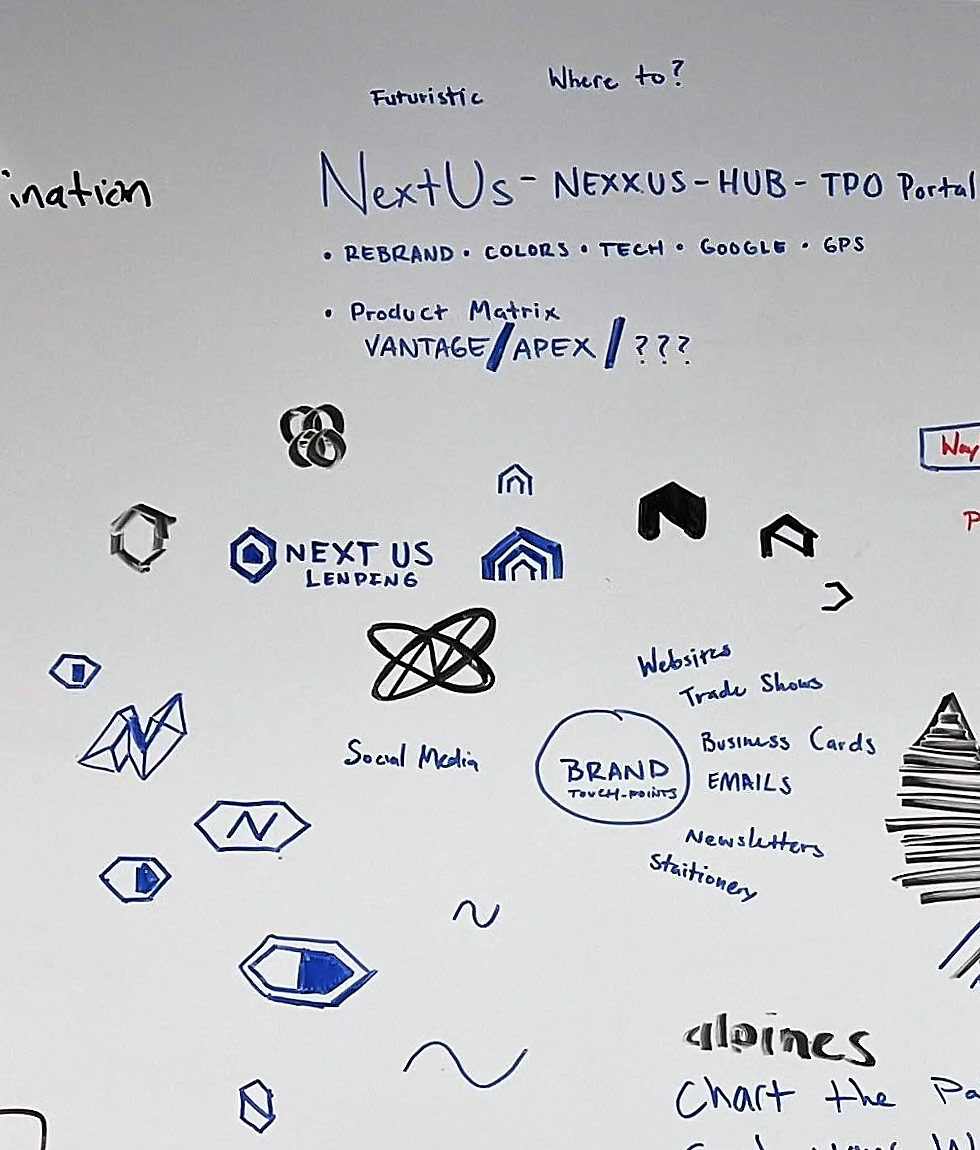 Futuristic
Where to?
ination
NextUs - NEXXUS - HUB - TPO Portal
• REBRAND • COLORS • TECH • GOOGLE • GPS
• Product Matrix
VANTAGE / APEX / ???
NEXT US
LENDING
Websites
Trade Shows
Social Media
BRAND
TOUCH-POINTS
Business Cards
EMAILS
N
Newsletters
Staitionery
N
alpines
Chart the Pa